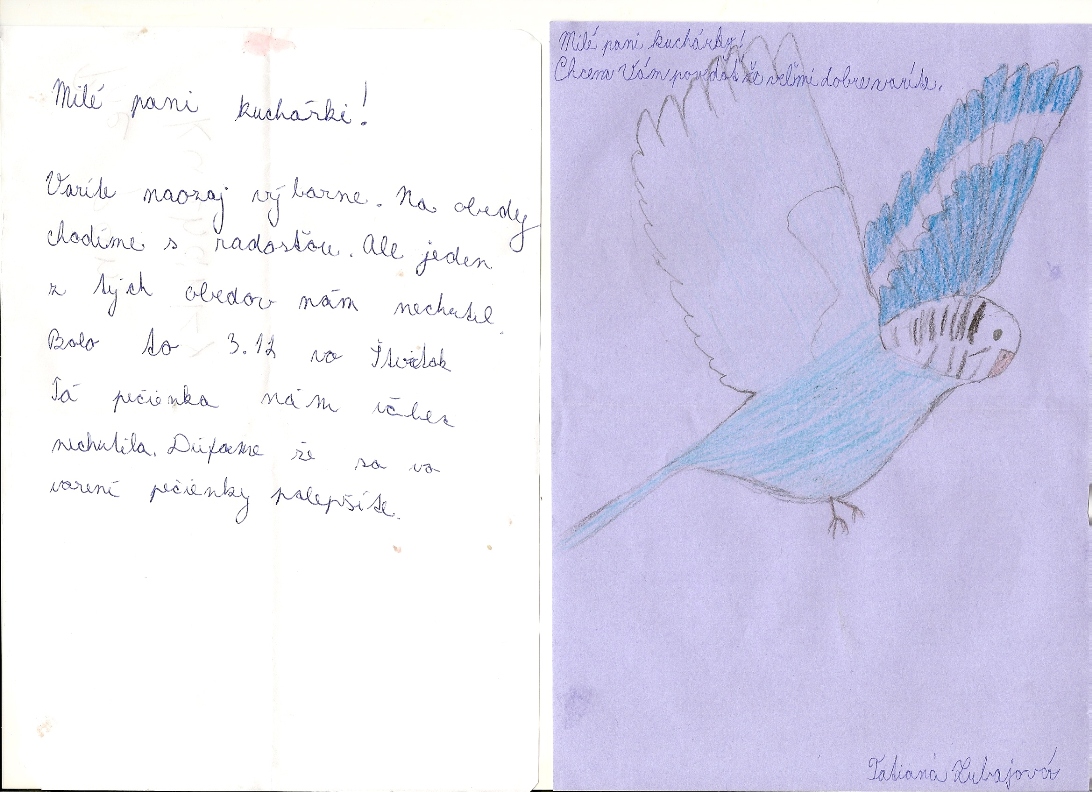 Milé pani kuchárki!
Varíte naozaj výbarne. Na obedy
chodíme s radosťou. Ale jeden
z tých obedov nám nechutil.
Bolo to 3.12 vo Štvrtok
Tá pečienka nám vôbec
nechutila. Dúfame že sa vo
varení pečienky polepšíte.
Milé pani kuchárky!
Chcem Vám povedať že veľmi dobre varíte.
Tatiana